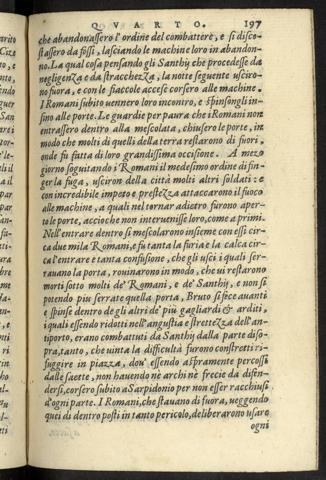 QVARTO. 197
che abandonassero l'ordine del combattere, e si disco-
stassero da fossi, lasciando le machine loro in abandon-
no. La qual cosa pensando gli Santhij che procedesse da
negligenza e da stracchezza, la notte seguente usciro-
no fuora, e con le fiaccole accese corsero alle machine.
I Romani subito uennero loro incontro, e spinsongli in-
sino alle porte. Le guardie per paura che i Romani non
entrassero dentro alla mescolata, chiusero le porte, in
modo che molti di quelli della terra restarono di fuori,
onde fu fatta di loro grandissima occisione. A mezo
giorno seguitando i Romani il medesimo ordine di fin-
ger la fuga, usciron della città molti altri soldati: e
con incredibile impeto e prestezza attaccarono il fuoco
alle machine, a quali nel tornar adietro furono aper-
te le porte, accioche non interuenisse loro, come a primi.
Nell'entrare dentro si mescolarono insieme con essi cir-
ca due mila Romani, e fu tanta la furia e la calca cir-
ca l'entrare e tanta confusione, che gli usci i quali ser-
rauano la porta, rouinarono in modo, che ui restarono
morti sotto molti de' Romani, e de' Santhij, e non si
potendo piu serrare quella porta, Bruto si fece auanti
e spinse dentro de gli altri de' piu gagliardi & arditi,
i quali essendo ridotti nell'angustia e strettezza dell'an-
tiporto, erano combattuti da Santhij dalla parte diso-
pra, tanto, che uinta la difficultà furono constretti ri-
fuggire in piazza, dou' essendo aspramente percossi
dalle saette, non hauendo ne archi nè frecie da difen-
dersi, corsero subito a Sarpidonio per non esser racchiusi
d'ogni parte. I Romani, che stauano di fuora, ueggendo
quei di dentro posti in tanto pericolo, deliberarono usare
ogni